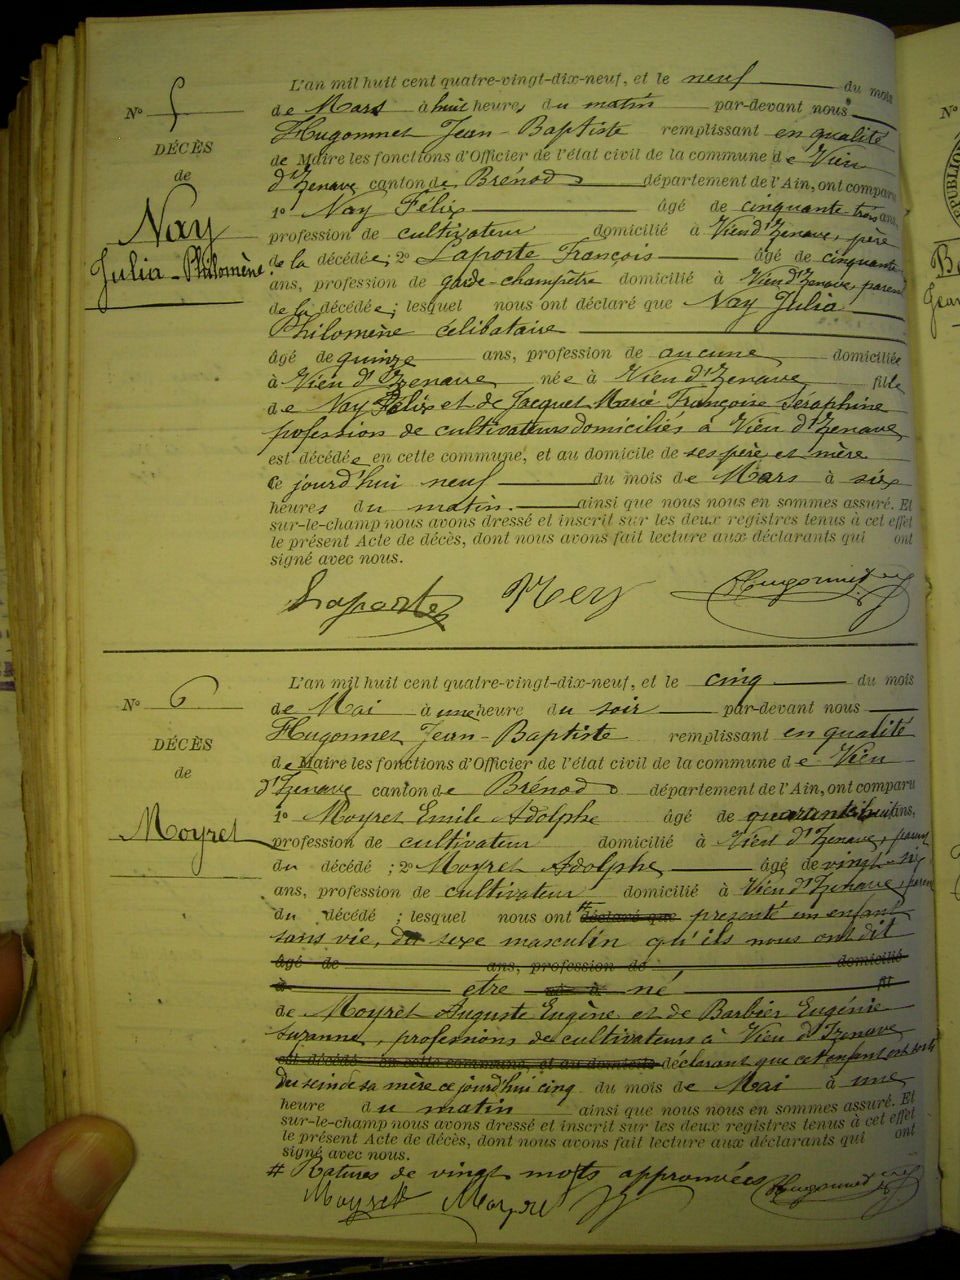 N° 5
DÉCÈS
de
Nay
Julia-Philomène
L'an mil huit cent quatre-vingt-dix-neuf, et le neuf du mois
de Mars à huit heures du matin par-devant nous
Hugonnet Jean-Baptiste remplissant en qualité
de Maire les fonctions d'Officier de l'état civil de la commune de Vieu
d'Izenave canton de Brénod département de l'Ain, ont comparu
1° Nay Félix âgé de cinquante-trois ans,
profession de cultivateur domicilié à Vieu d'Izenave, père
de la décédée; 2° Laporte François âgé de cinquante
ans, profession de garde-champêtre domicilié à Vieu d'Izenave, parent
de la décédée; lesquel nous ont déclaré que Nay Julia
Philomène célibataire
âgé de quinze ans, profession de aucune domiciliée
à Vieu d'Izenave née à Vieu d'Izenave fille
de Nay Félix et de Jacquet Marie Françoise Séraphine
profession de cultivateurs domiciliés à Vieu d'Izenave
est décédée en cette commune, et au domicile de ses père et mère
ce jourd'hui neuf du mois de Mars à six
heures du matin. ainsi que nous nous en sommes assuré. Et
sur-le-champ nous avons dressé et inscrit sur les deux registres tenus à cet effet
le présent Acte de décès, dont nous avons fait lecture aux déclarants qui ont
signé avec nous.
Laporte Ney Hugonnet
N° 6
DÉCÈS
de
Moyret
L'an mil huit cent quatre-vingt-dix-neuf, et le cinq du mois
de Mai à une heure du soir par-devant nous
Hugonnet Jean-Baptiste remplissant en qualité
de Maire les fonctions d'Officier de l'état civil de la commune de Vieu
d'Izenave canton de Brénod département de l'Ain, ont comparu
1° Moyret Emile Adolphe âgé de quarante-huit ans,
profession de cultivateur domicilié à Vieu d'Izenave, parent
du décédé; 2° Moyret Adolphe âgé de vingt-six
ans, profession de cultivateur domicilié à Vieu d'Izenave, parent
du décédé; lesquel nous ont # déclaré que présenté un enfant
sans vie, du sexe masculin qu'ils nous ont dit
âgé de ans, profession de domicilié
à être né à né fil
de Moyret Auguste Eugène et de Barbier Eugénie
Suzanne, professions de cultivateurs à Vieu d'Izenave
est décédé en cette commune, et au domicile déclarant que cet enfant est sorti
du sein de sa mère ce jourd'hui cinq du mois de Mai à une
heure du matin ainsi que nous nous en sommes assuré. Et
sur-le-champ nous avons dressé et inscrit sur les deux registres tenus à cet effet
le présent Acte de décès, dont nous avons fait lecture aux déclarants qui ont
signé avec nous.
# Ratures de vingt mots approuvées
Moyret Moyret Hugonnet